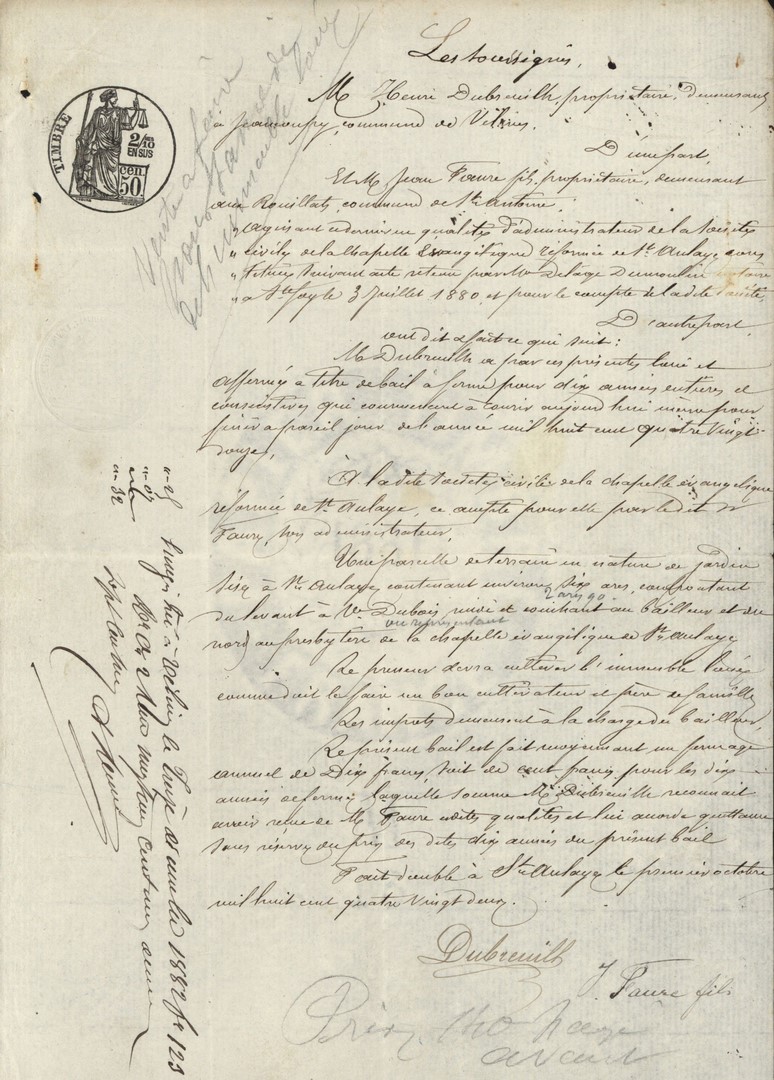 Les soussignés,
M. Henri Dubreuilh, propriétaire, demeurant
à commune de Vélines.
D'une part,
Et M. Jean Faure fils, propriétaire, demeurant
aux Rouillats, commune de St. Antoine,
" agissant ce dernier en qualité d'administrateur de la Société
" civile de la chapelle Evangélique réformée de St. Aulaye
" suivant acte retenu par Me Delage Dumoulin notaire
" à Ste foy le 3 Juillet 1880, et pour le compte de la dite Société,
D'autre part,
ont dit et fait ce qui suit :
M. Dubreuilh a par ces présentes loué et
affermé à titre de bail à ferme pour dix années entières et
consécutives qui commencent à courir aujourd'hui même pour
finir à pareil jour de l'année mil huit cent quatre vingt
douze,
A la dite Société civile de la chapelle évangélique
réformée de St. Aulaye, ce accepté pour elle par le dit M.
Faure, son administrateur,
Une parcelle de terrain en nature de jardin
sise à St. Aulaye, contenant environ six ares, confrontant
2 ares 90
du levant à Ve. Dubois, midi et couchant au bailleur et du
ou représentant
nord au presbytère de la chapelle évangélique de St. Aulaye
Le preneur devra cultiver l'immeuble loué
comme doit le faire un bon cultivateur et père de famille
Les impôts demeurent à la charge du bailleur,
Le présent bail est fait moyennant un fermage
annuel de Dix francs, soit de cent francs pour les dix
années de ferme, laquelle somme M. Dubreuilh reconnait
avoir reçue de M. Faure ès dites qualités et lui accorde quittance
sans réserve du prix des dites dix années du présent bail
Fait double à St. Aulaye, le premier octobre
mil huit cent quatre vingt deux.
Dubreuilh
J. Faure fils
avant
TIMBRE
2/10
EN SUS
CEN.
50
Vente à faire
à Vélines le Treize octobre 1882 fo 123